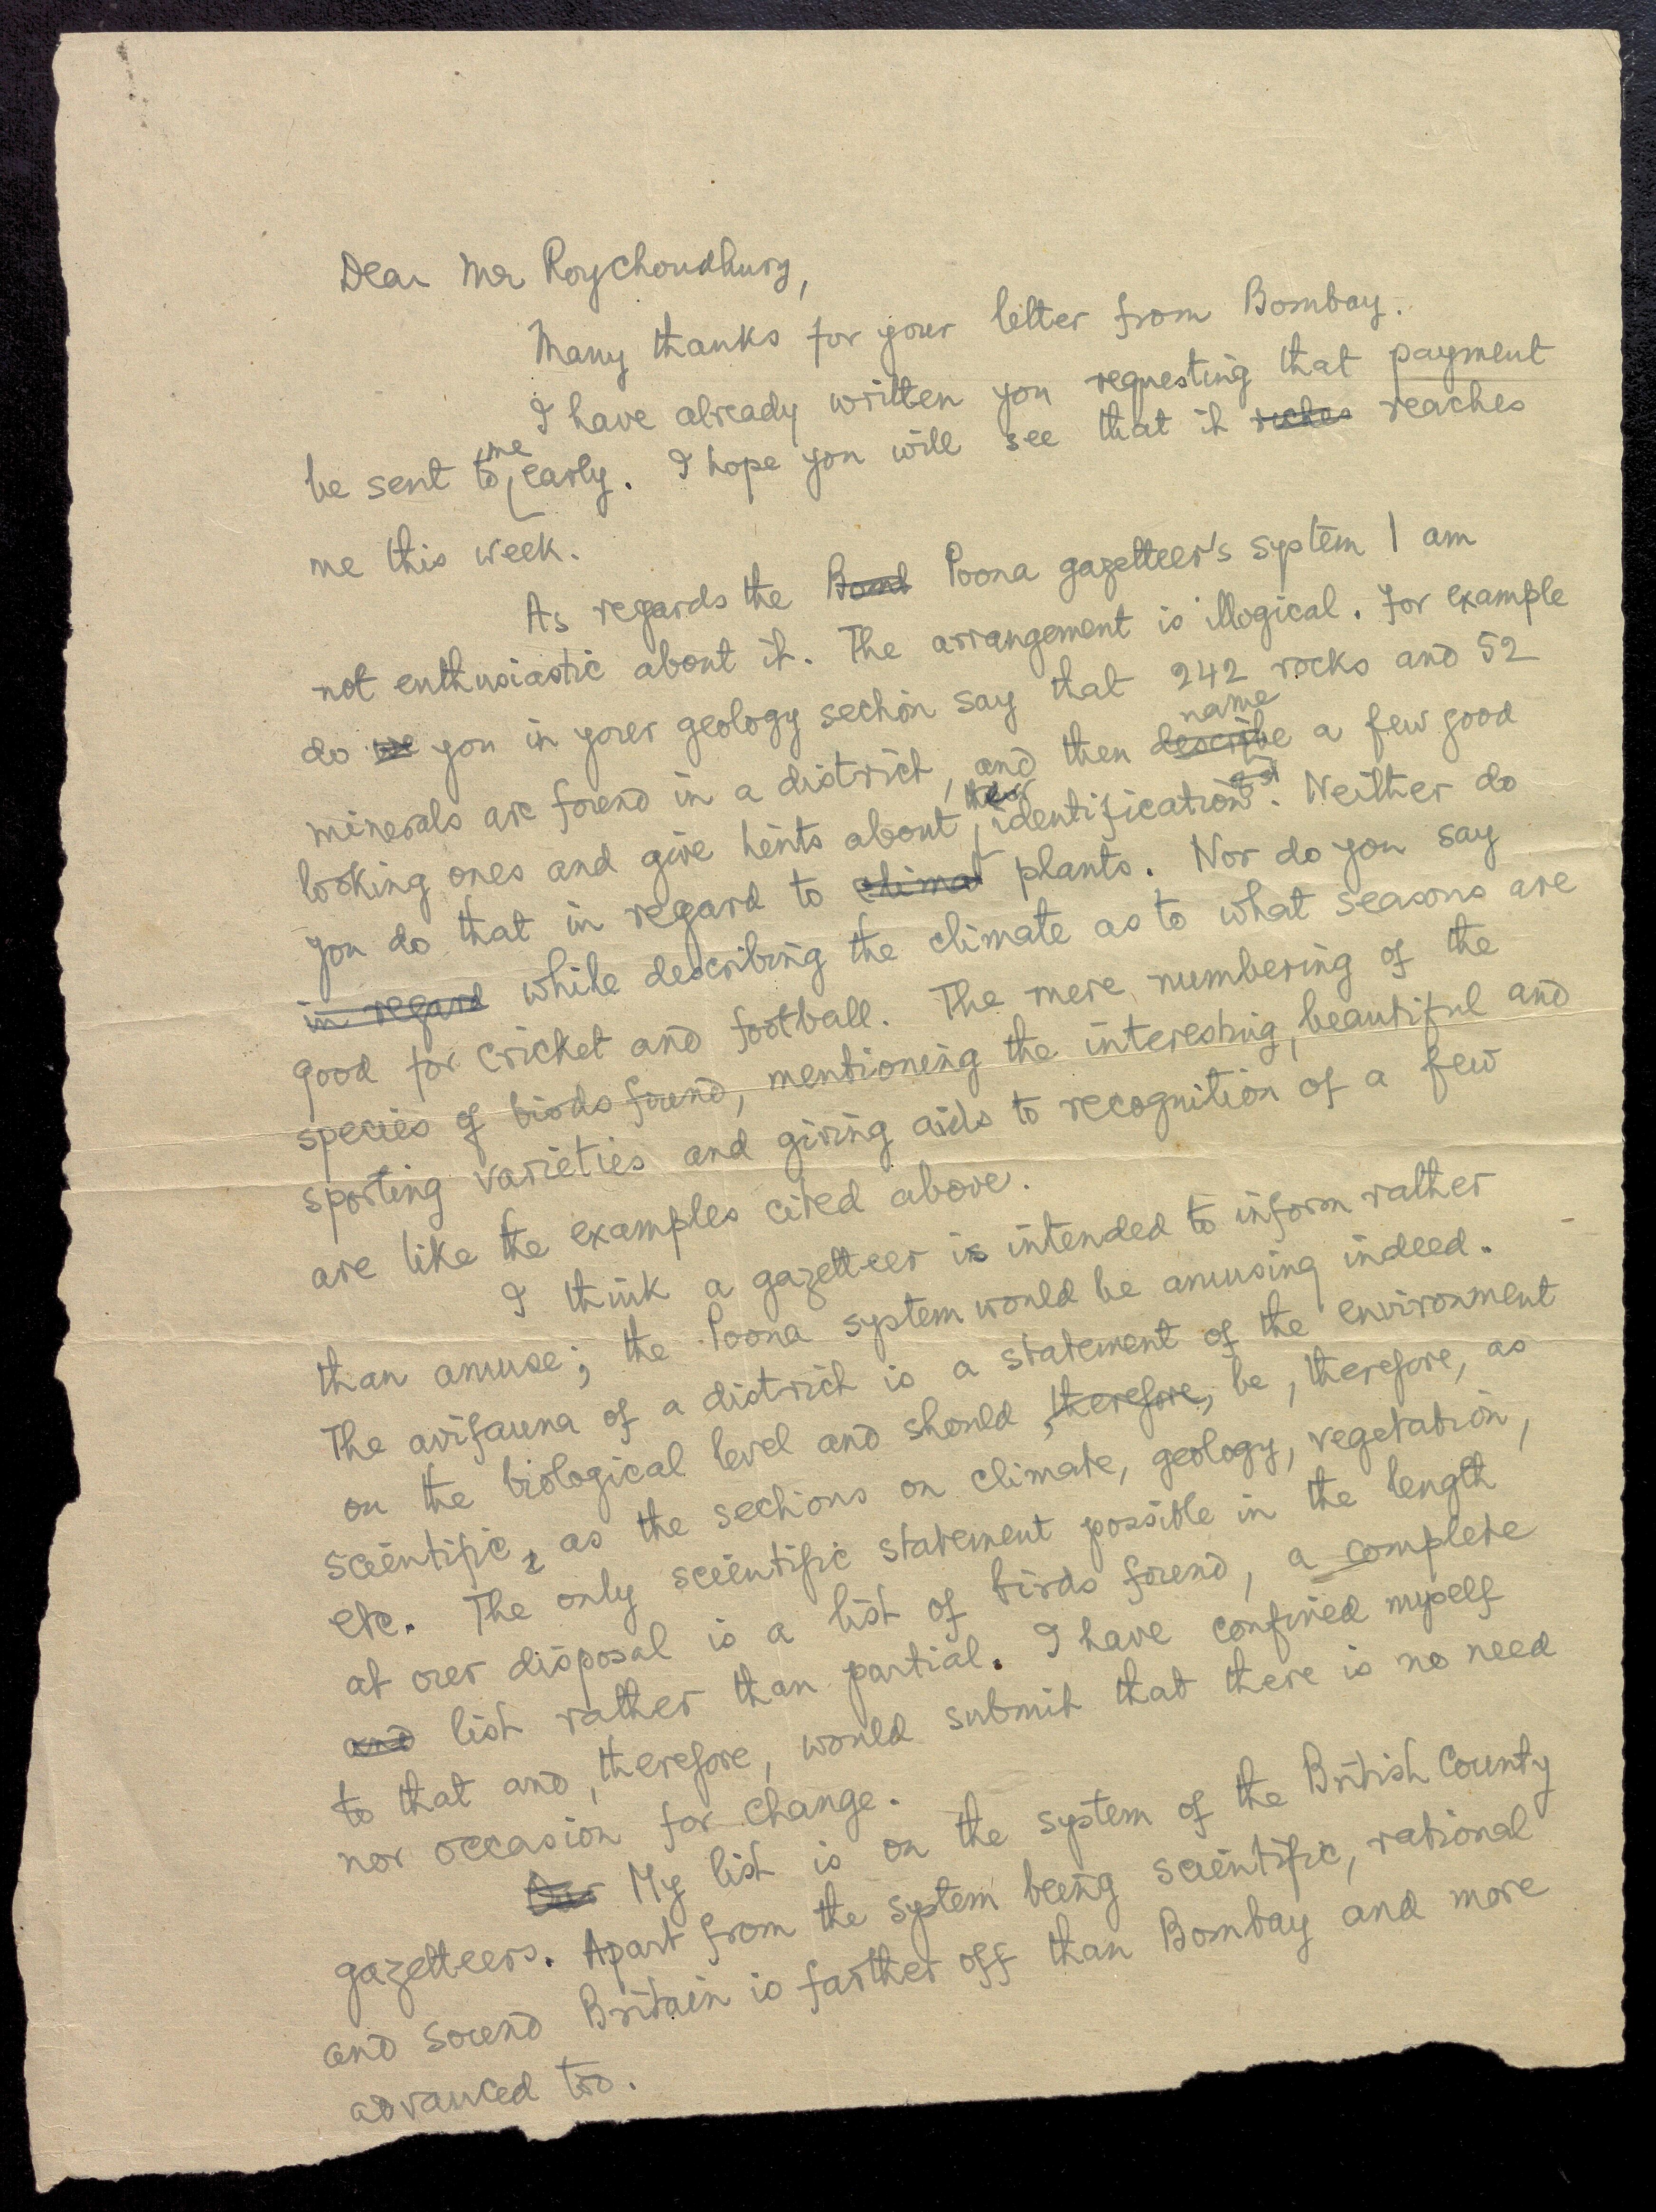 Dear Mr Roychoudhury,
Many thanks for your letter from Bombay.
I have already written you requesting that payment
be sent to me early. I hope you will see that it riches reaches
me this week.
As regards the Bomb Poona gazetteer's system I am
not enthusiastic about it. The arrangement is illogical. For example
do we you in your geology section say that 242 rocks and 52
minerals are found in a district, and then describe name a few good
looking ones and give hints about their identification. Neither do
you do that in regard to climat plants. Nor do you say
in regard while describing the climate as to what seasons are
good for cricket and football. The mere numbering of the
species of birds found, mentioning the interesting, beautiful and
sporting varieties and giving aids to recognition of a few
are like the examples cited above.
I think a gazetteer is intended to inform rather
than amuse; the Poona system would be amusing indeed.
The avifauna of a district is a statement of the environment
on the biological level and should, therefore, be, therefore, as
scientific, as the sections on climate, geology, vegetation,
etc. The only scientific statement possible in the length
at our disposal is a list of birds found, a complete
and list rather than partial. I have confined myself
to that and, therefore, would submit that there is no need
nor occasion for change.
Our My list is on the system of the British County
gazetteers. Apart from the system being scientific, rational
and sound Britain is farther off than Bombay and more
advanced too.